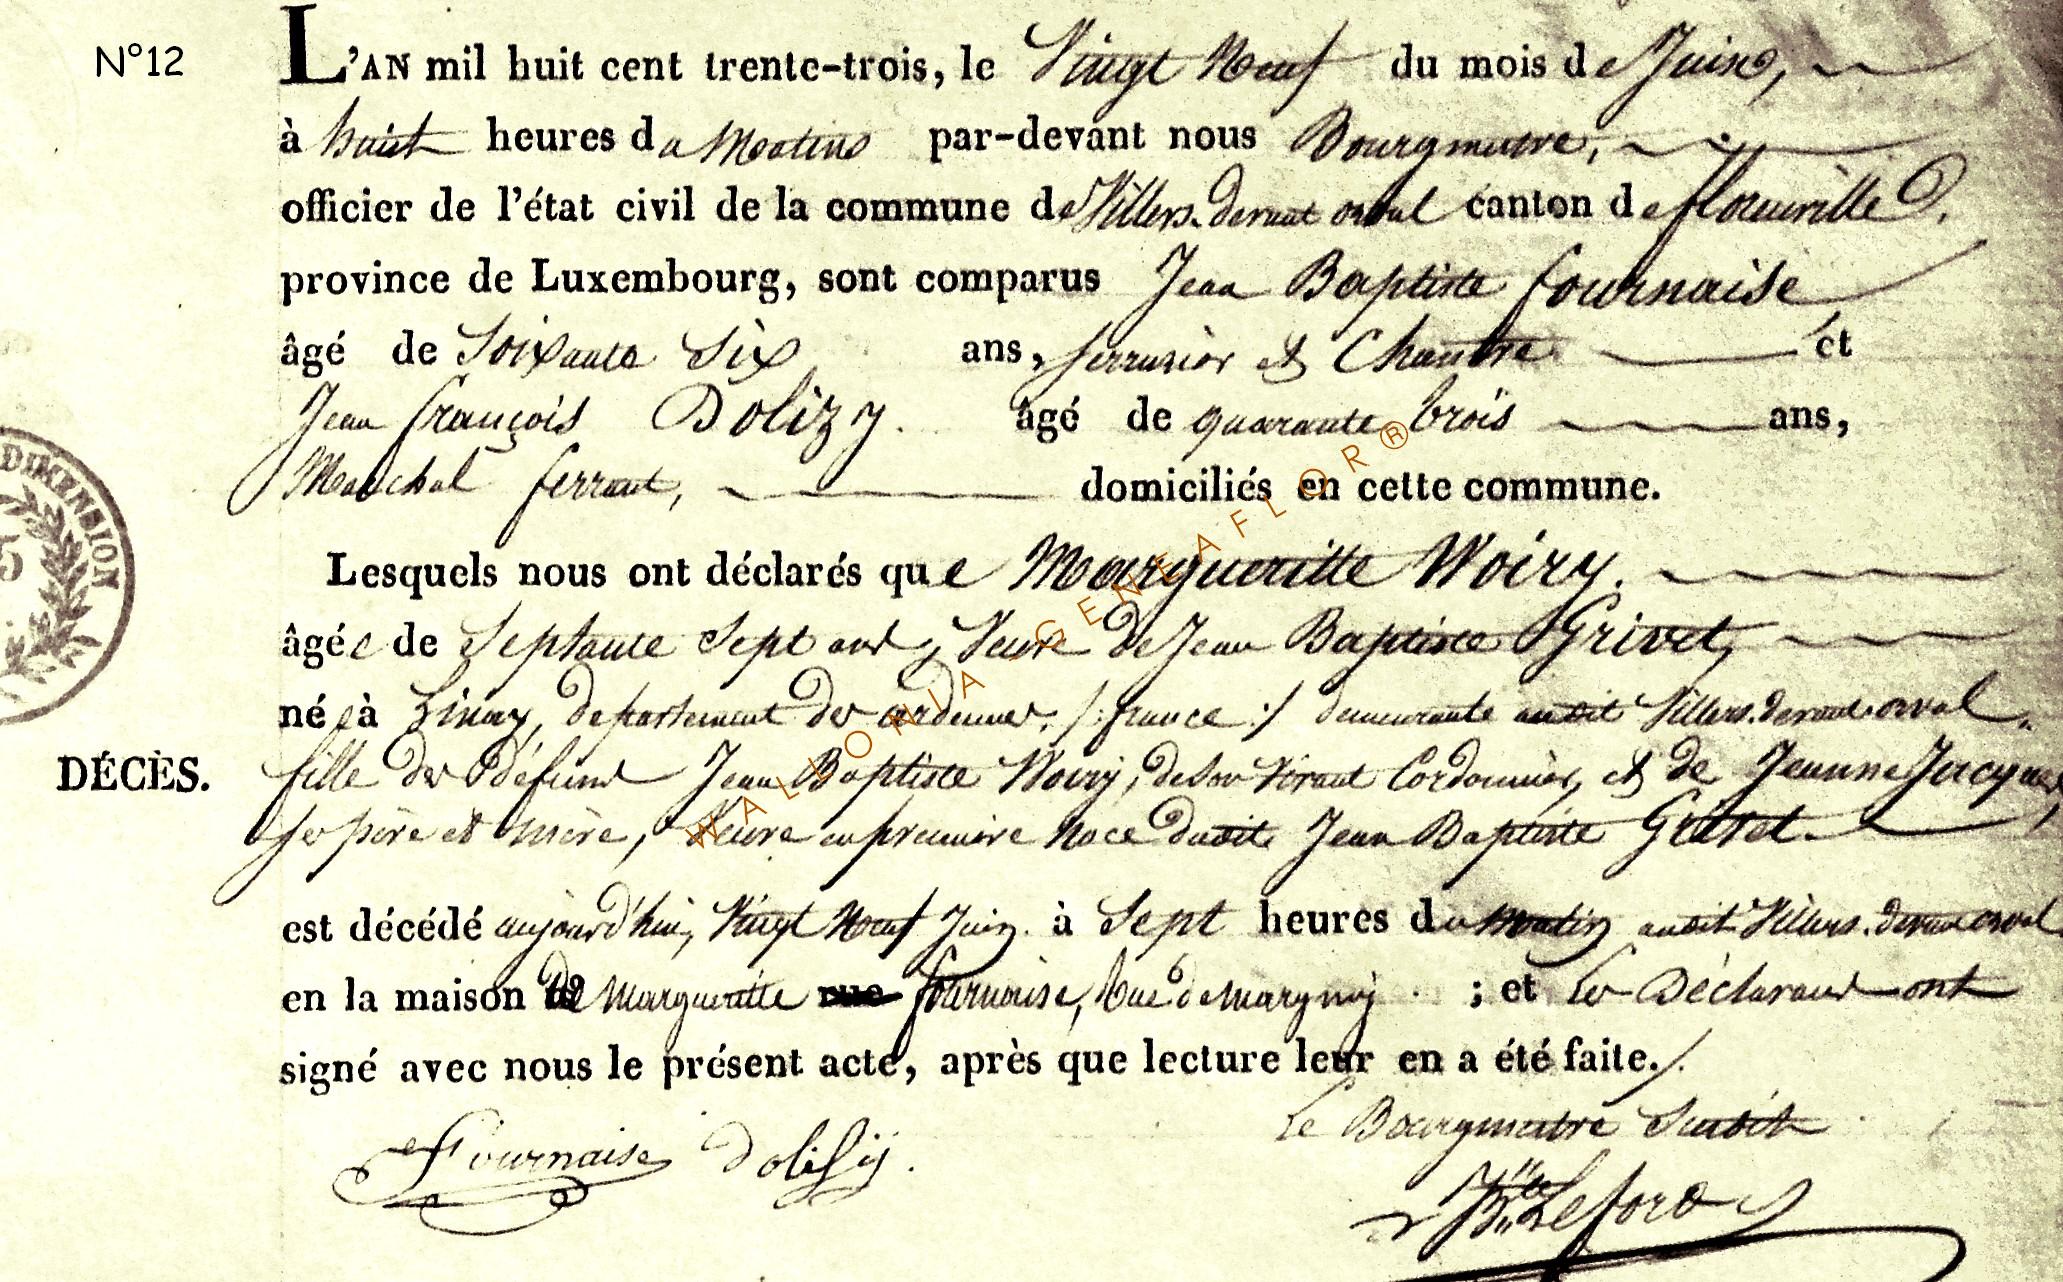 N°12
L'AN mil huit cent trente-trois, le Vingt Neuf du mois de Juin,
à huit heures du Matin par-devant nous Bourgmestre,
officier de l'état civil de la commune de Villers-devant orval canton de florenville
province de Luxembourg, sont comparus Jean Baptiste fournaise,
âgé de Soixante Six ans, Serrurier et Chantre et
Jean françois Dolizy. âgé de quarante trois ans,
Maréchal ferrant, domiciliés en cette commune.
Lesquels nous ont déclarés que Margueritte Woiry.
âgée de Septante Sept ans, Veuve de Jean Baptiste Grivet,
née à Linay, departement des ardennes, /: france :/ demeurante audit Villers-devant-orval.
DÉCÈS.
fille des défunt Jean Baptiste Woiry, de son Vivant Cordonnier, et de Jeanne Jacques,
ses père et mère, Veuve en première Noce dudit Jean Baptiste Grivet.
est décédé aujourd'hui, Vingt Neuf Juin à Sept heures du matin audit Villers-devant orval
en la maison de Margueritte fournaise, Rue de margny ; et les Déclarans ont
signé avec nous le présent acte, après que lecture leur en a été faite./.
Le Bourgmestre Susdit
Fournaise Dolisij.
Leford
DIMENSION
5
WALLONIA GENEAFLOR®